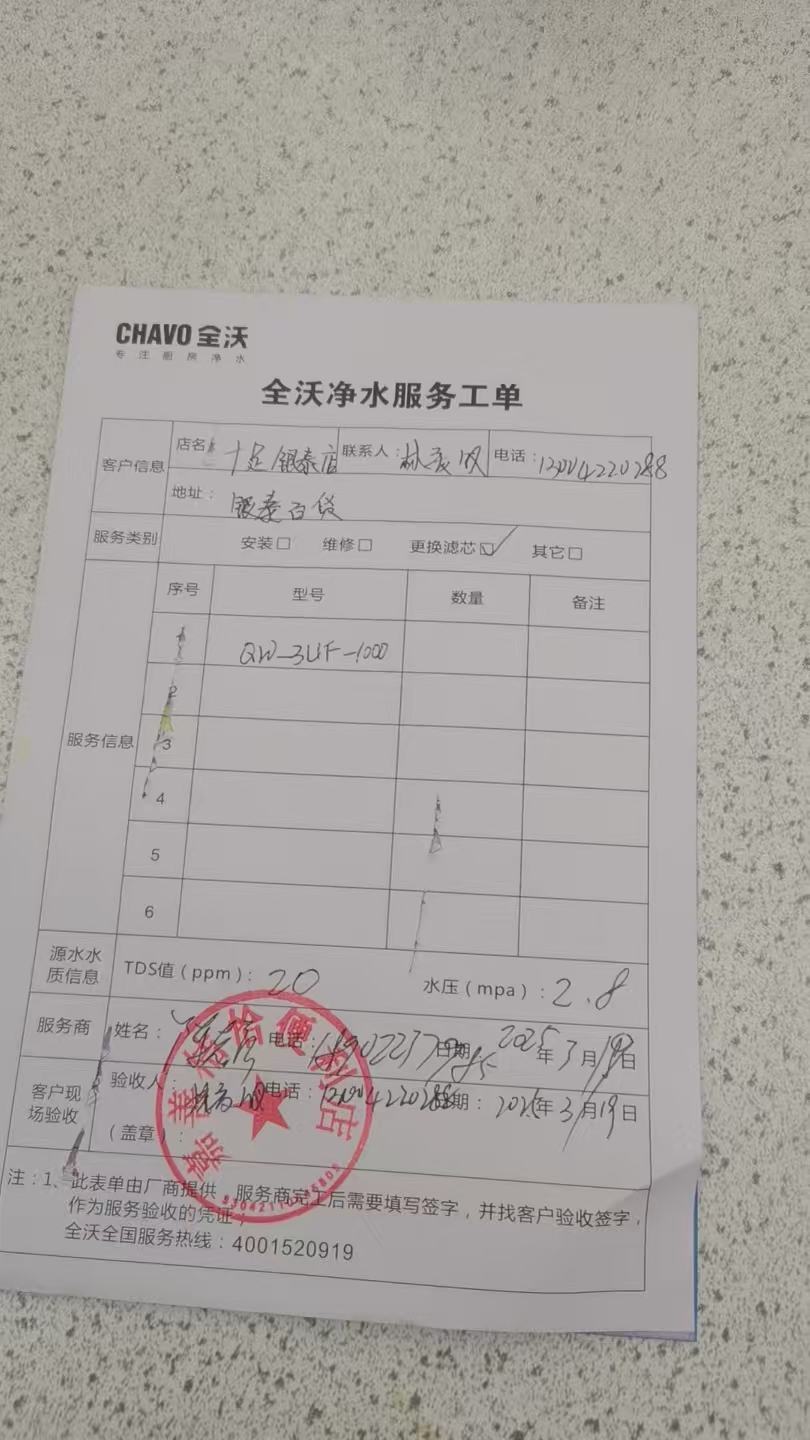 CHAVO 全沃
专注厨房净水
全沃净水服务工单
客户信息 店名: 十足银泰店 联系人: 林 电话: 13004220288
地址: 银泰百货
服务类别 安装□ 维修□ 更换滤芯☑ 其它□
序号 型号 数量 备注
QW-3UF-1000
2
服务信息 3
4
5
6
源水水质信息 TDS值(ppm): 20 水压(mpa): 2.8
服务商 姓名: 电话: 日期: 2025年3月19日
客户现场验收 验收人: 电话: 13004220288 日期: 2025年3月19日
(盖章):
嘉善 便利店
注:1、此表单由厂商提供,服务商完工后需要填写签字,并找客户验收签字,
作为服务验收的凭证;
全沃全国服务热线:4001520919